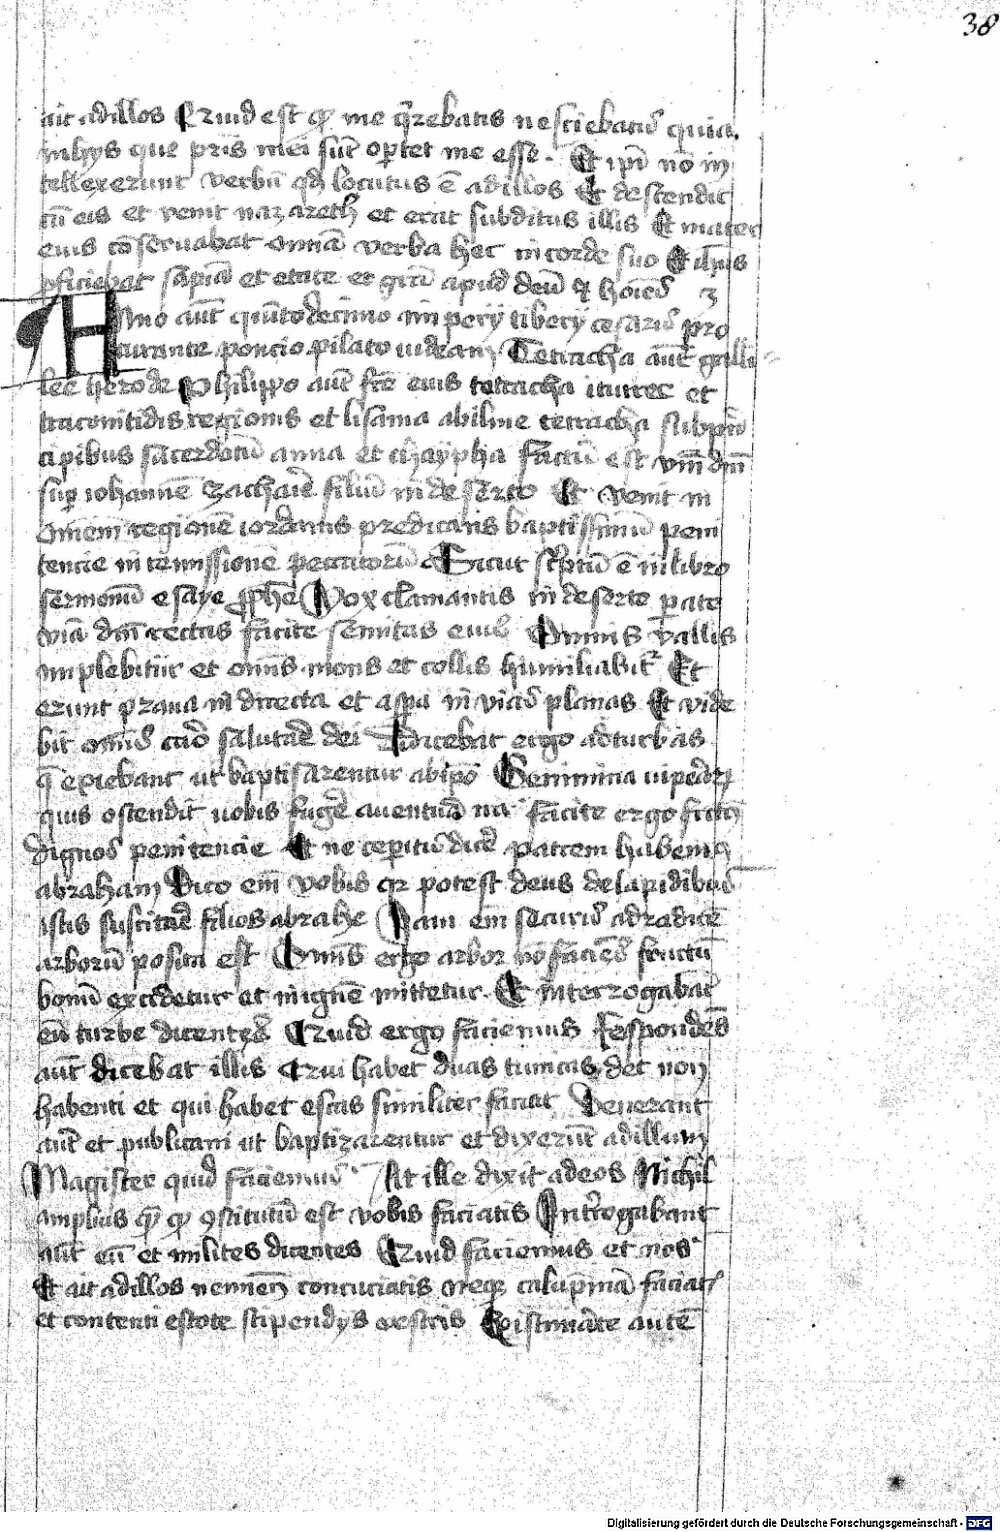 38
ait ad illos Quid est q me q̄rebatis nesciebatis quia
in hys que pris mei sūt oportet me esse. Et ipi nō in
tellexerunt verbū qd locutus ē ad illos Et descendit
cū eis et venit nazareth et erat subditus illis Et mater
eius cōseruabat omnia verba hec in corde suo Et ihus
pficiebat sapia et etate et gra apud deū et hoies 3
Anno aūt quinto decimo imperij tiberij cesaris pro
curante poncio pilato iudeam Tetracha aūt galli
lee herode Philippo aūt fre eius tetracha ituree et
traconitidis regionis et lisania abiline tetracha sub prin
cipibus sacerdotū anna et chaypha Factū est vm dni
sup iohannē zacharie filiū in deserto Et venit in
omem regionē iordanis predicans baptissimū peni
tencie in remissionē peccatorū Sicut scptū ē in libro
sermonū esaye pphe Vox clamantis in deserto pate
viā dni rectas facite semitas eius Omnis vallis
implebitur et omis mons et collis humiliabit Et
erunt praua in directa et aspa in vias planas Et vide
bit omis caro salutare dei Dicebat ergo ad turbas
q exiebant ut baptisarentur ab ipo Genimina uiperar
quis ostendit uobis fugere a ventura ira Facite ergo fruct
dignos penitencie Et ne ceperitis dicere patrem habemus
abraham Dico em vobis qr potest deus de lapidibus
istis suscitare filios abrahe Iam em securis ad radice
arborū posita est Omis ergo arbor nō faciēs fructū
bonū excidetur et in ignē mittetur. Et interrogabāt
eū turbe dicentes Quid ergo faciemus Respondēs
aūt dicebat illis Qui habet duas tunicas det non
habenti et qui habet escas similiter faciat Venerant
aūt et publicani ut baptizarentur et dixerūt ad illum
Magister quid faciemus At ille dixit ad eos Nichil
amplius q q 9stitutū est vobis faciatis Introgabant
aūt eū et milites dicentes Quid faciemus et nos
Et ait ad illos neminē concuciatis neq calupniā faciat
et contenti estote stipendys vestris Existimate autē
Digitalisierung gefördert durch die Deutsche Forschungsgemeinschaft - DFG